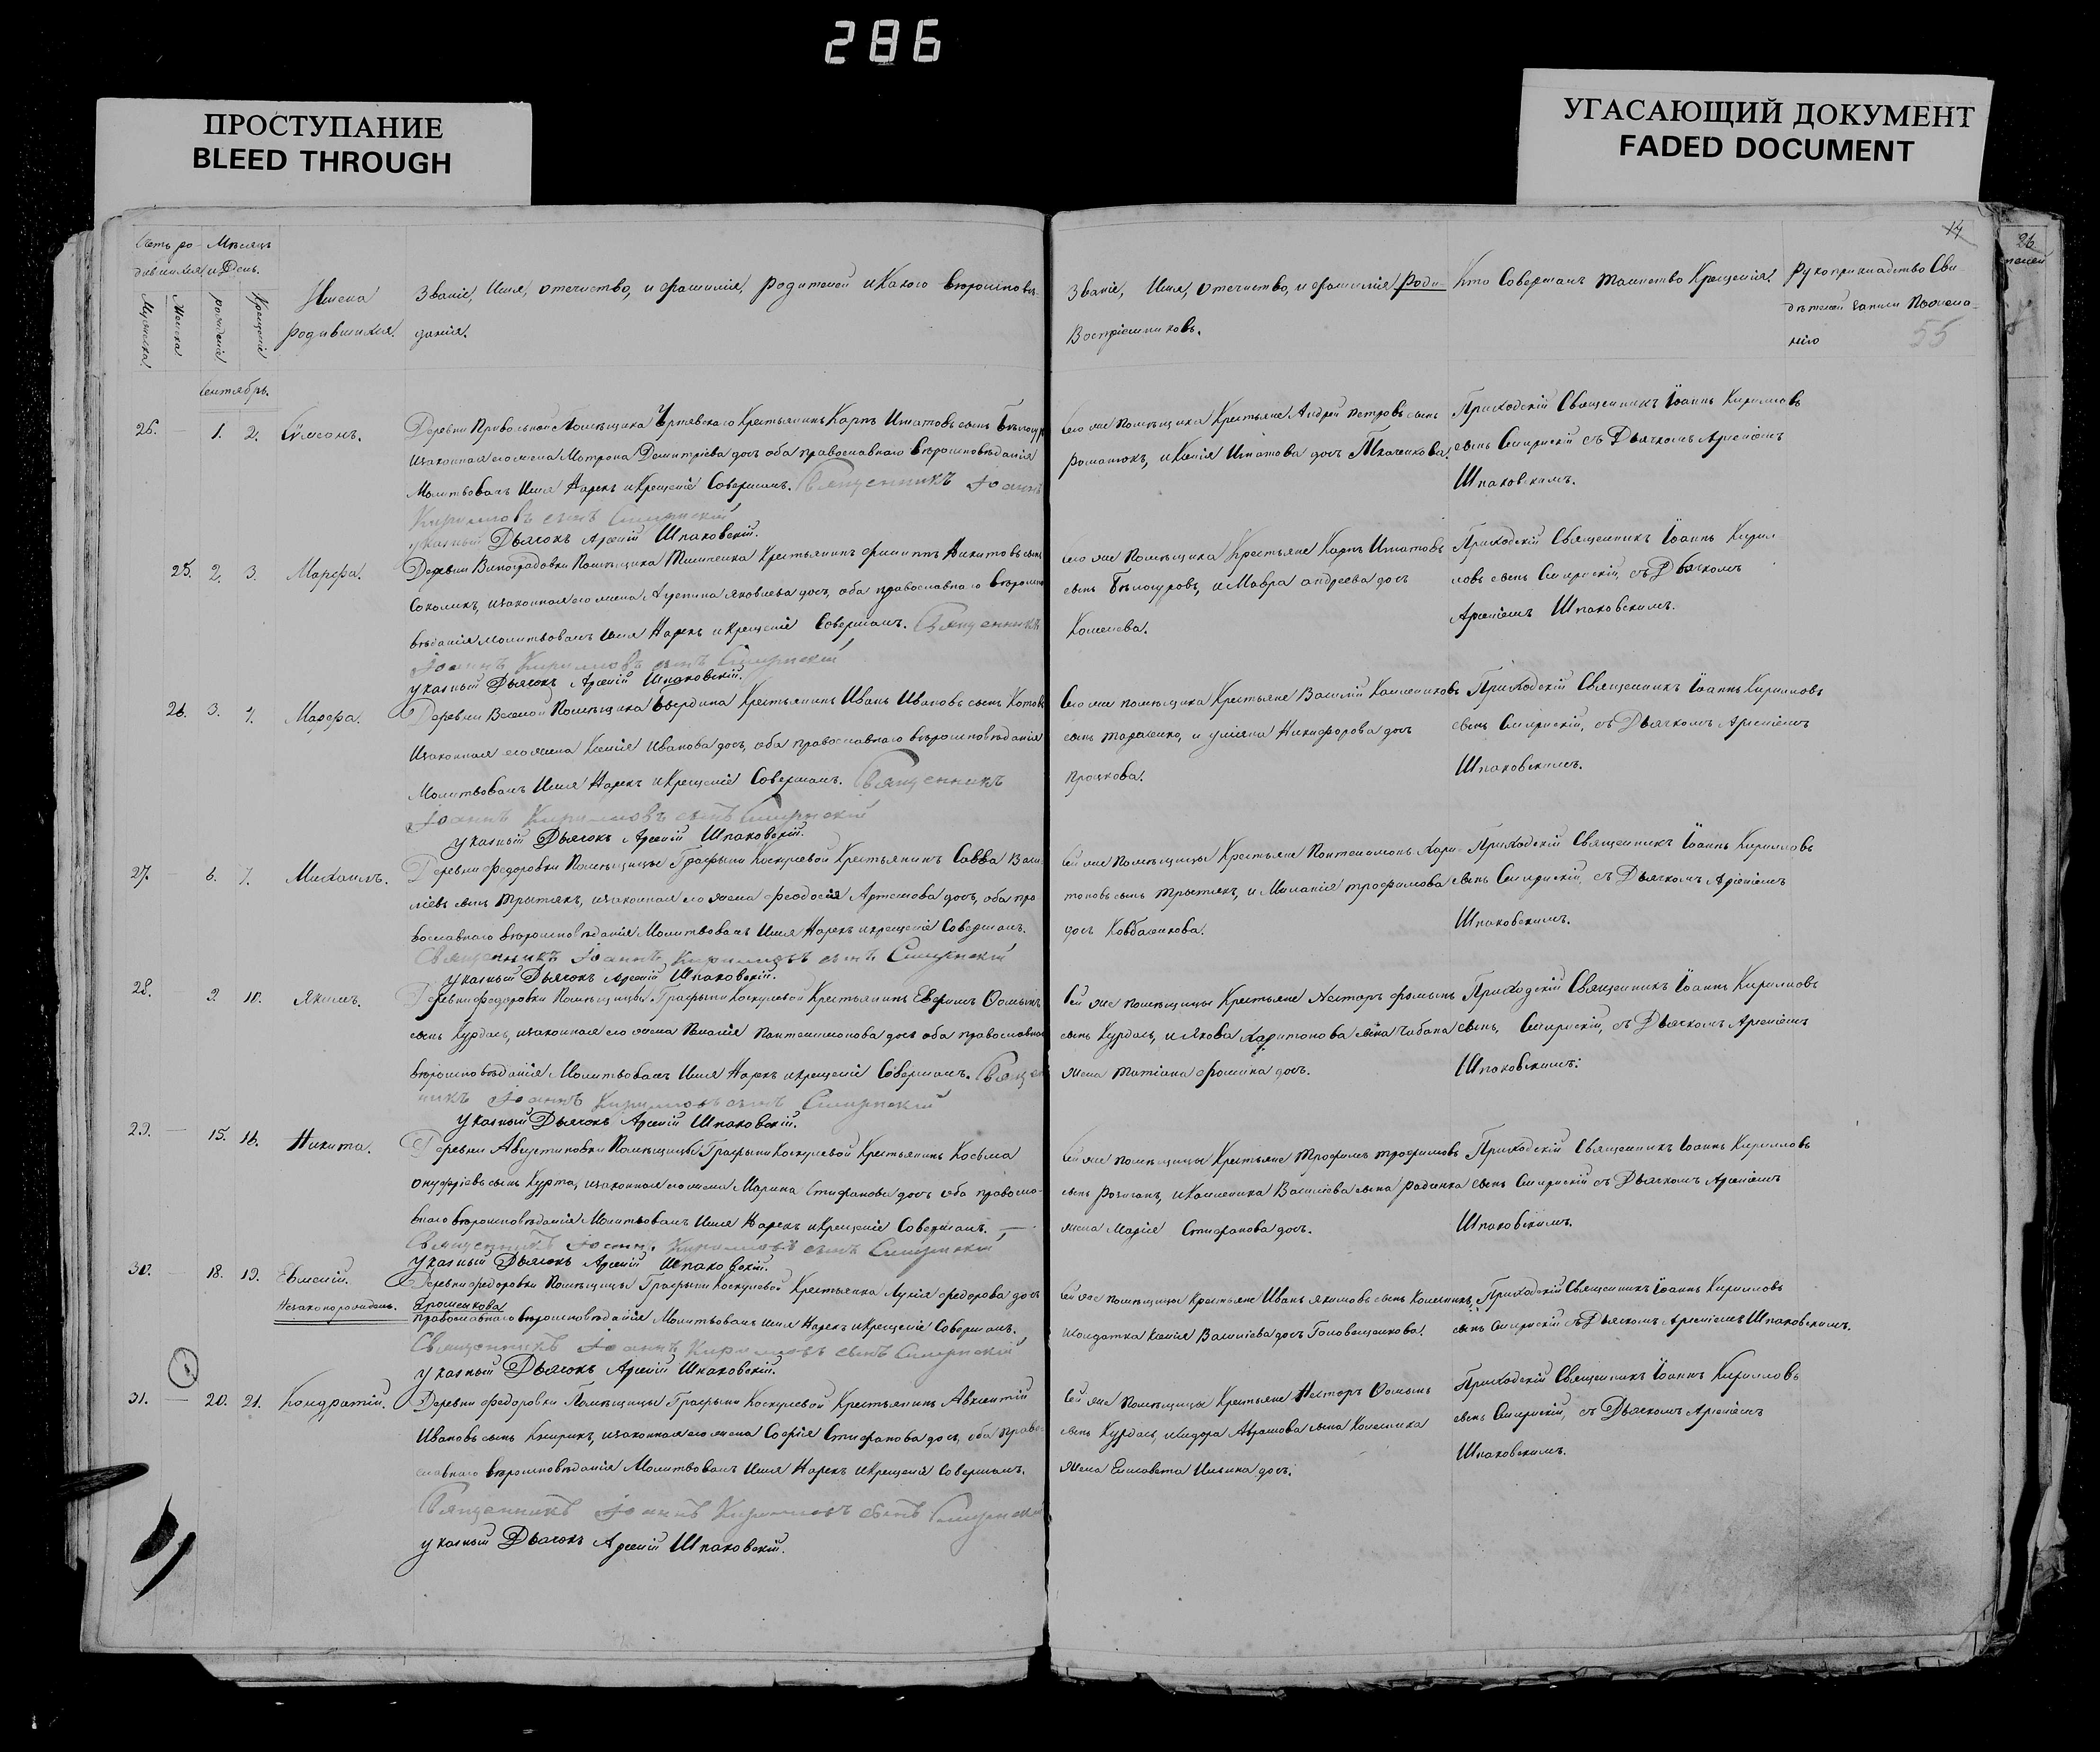 286
ПРОСТУПАНИЕ
BLEED THROUGH
УГАСАЮЩИЙ ДОКУМЕНТ
FADED DOCUMENT
14
26
55
Мѣсяцъ
и День.
Имена
родившихся.
Званіе, Имя, отечество, и фамилія, родителей и Какого вѣроисповѣ-
данія.
Званіе, Имя, Отечество, и фамилія Роди-
Воспріемниковъ.
Кто Совершалъ таинство Крещенія.
Рукоприкладство Сви-
дѣтелей записи
Сентябрь.
26. — 1. 2. Сѵмеонъ.
Деревни Привольной Помѣщика Крестьянинъ Карпъ Игнатовъ сынъ
и законная его жена Матрона Димитріева дочь оба православнаго вѣроисповѣданія
Молитвовалъ Имя Нарекъ и Крещеніе Совершалъ. Священникъ Іоаннъ
Кирилловъ сынъ
указный Дьячокъ Арсеній Шпаковскій.
его же Помѣщика Крестьяне Андрей Петровъ сынъ
Романюкъ, и Ксенія Игнатова дочь Ткаченкова.
Приходскій Священникъ Іоаннъ Кирилловъ
сынъ съ Дьячкомъ Арсеніемъ
Шпаковскимъ.
25. 2. 3. Марфа.
Деревни Виноградовки Помѣщика Крестьянинъ Филиппъ Никитовъ сынъ
Соколикъ, и законная его жена Агрепина Яковлева дочь, оба православнаго вѣроиспо
вѣданія Молитвовалъ Имя Нарекъ и Крещеніе Совершалъ. Священникъ
Іоаннъ Кирилловъ сынъ
указный Дьячокъ Арсеній Шпаковскій.
его же Помѣщика Крестьяне Карпъ Игнатовъ
сынъ Бѣлоуровъ, и Мавра Андреева дочь
Кошелева.
Приходскій Священникъ Іоаннъ Кирил
ловъ сынъ съ Дьячкомъ
Арсеніемъ Шпаковскимъ.
26. 3. 7. Марфа.
Деревни Веселой Помѣщика Крестьянинъ Иванъ Ивановъ сынъ
и законная его жена Ксенія Иванова дочь, оба православнаго вѣроисповѣданія
Молитвовалъ Имя Нарекъ и Крещеніе Совершалъ. Священникъ
Іоаннъ Кирилловъ сынъ
указный Дьячокъ Арсеній Шпаковскій.
его же помѣщика Крестьяне Василій
сынъ и Никифорова дочь
Приходскій Священникъ Іоаннъ Кирилловъ
сынъ съ Дьячкомъ Арсеніемъ
Шпаковскимъ.
27. — 6. 7. Михаилъ.
Деревни Федоровки Помѣщицы Графыни Крестьянинъ Савва Васи-
ліевъ сынъ Третякъ, и законная его жена Феодосія Артемова дочь, оба пра
вославнаго вѣроисповѣданія Молитвовалъ Имя Нарекъ и крещеніе Совершалъ.
Священникъ Іоаннъ Кирилловъ сынъ
указный Дьячокъ Арсеній Шпаковскій.
ея же помѣщицы Крестьяне Пантелеимонъ Хари-
тоновъ сынъ Третякъ, и Миланія Трофимова
дочь
Приходскій Священникъ Іоаннъ Кирилловъ
сынъ съ Дьячкомъ Арсеніемъ
Шпаковскимъ.
28. 9. 10. Якимъ.
Деревни Федоровки Помѣщицы Графыни Крестьянинъ Ефимъ Фоминъ
сынъ Курдась, и законная его жена Пантелеимонова дочь оба православнаго
вѣроисповѣданія Молитвовалъ Имя Нарекъ и Крещеніе Совершалъ. Священ
никъ Іоаннъ Кирилловъ сынъ
указный Дьячокъ Арсеній Шпаковскій.
ея же помѣщицы Крестьяне Несторъ Фоминъ
сынъ Курдась, и Якова Харитонова сына Чабана
жена Татіана Фомина дочь.
Приходскій Священникъ Іоаннъ Кирилловъ
сынъ съ Дьячкомъ Арсеніемъ
Шпаковскимъ.
29. — 15. 16. Никита.
Деревни Августиновки Помѣщицы Графыни Крестьянинъ Косьма
Онуфріевъ сынъ Курта, и законная его жена Марина Стефанова дочь оба правосла-
внаго вѣроисповѣданія Молитвовалъ Имя Нарекъ и Крещеніе Совершалъ.
Священникъ Іоаннъ Кирилловъ сынъ
указный Дьячокъ Арсеній Шпаковскій.
ея же помѣщицы Крестьяне Трофимъ Трофимовъ
сынъ и Василіева сына
жена Марія Стефанова дочь.
Приходскій Священникъ Іоаннъ Кирилловъ
сынъ съ Дьячкомъ Арсеніемъ
Шпаковскимъ.
30. — 18. 19. Евменій.
Незаконорожденъ.
Деревни Федоровки Помѣщицы Графыни Крестьянка Лукія Федорова дочь
православнаго вѣроисповѣданія Молитвовалъ Имя Нарекъ и Крещеніе Совершалъ.
Священникъ Іоаннъ Кирилловъ сынъ
указный Дьячокъ Арсеній Шпаковскій.
ея же помѣщицы Крестьяне Иванъ Якимовъ сынъ
и солдатка Ксенія Василіева дочь
Приходскій Священникъ Іоаннъ Кирилловъ
сынъ съ Дьячкомъ Арсеніемъ Шпаковскимъ.
31. — 20. 21. Кондратій.
Деревни Федоровки Помѣщицы Графыни Крестьянинъ Авксентій
Ивановъ сынъ и законная его жена Софія Стефанова дочь, оба право-
славнаго вѣроисповѣданія Молитвовалъ Имя Нарекъ и Крещеніе Совершалъ.
Священникъ Іоаннъ Кирилловъ сынъ
указный Дьячокъ Арсеній Шпаковскій.
ея же помѣщицы Крестьяне Несторъ Фоминъ
сынъ Курдась, и Сидора Аврамова сына Колесника
жена Елисавета Ильина дочь.
Приходскій Священникъ Іоаннъ Кирилловъ
сынъ съ Дьячкомъ Арсеніемъ
Шпаковскимъ.